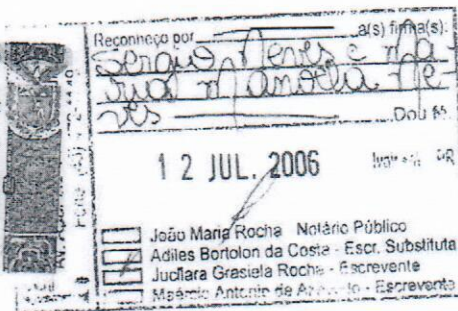 Reconheço por a(s) firma(s):
Sergio Neves e Ma-
ria Manoela Ne-
ves Dou fé.
12 JUL. 2006 PR
João Maria Rocha - Notário Público
Adiles Bortolon da Costa - Escr. Substituta
Jucílara Grasiela Rocha - Escrevente
Antonio de - Escrevente